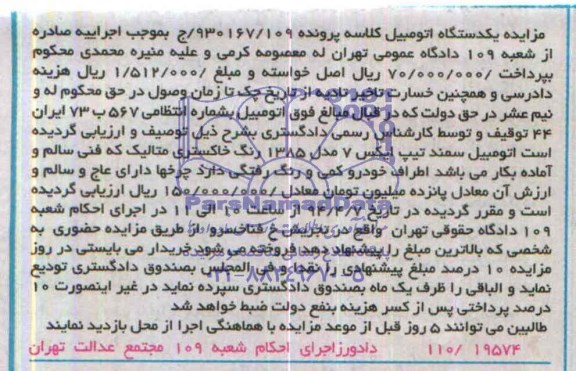 مزایده یکدستگاه اتومبیل کلاسه پرونده ۹۳۰۱۶۷/۱۰۹/ج بموجب اجراییه صادره
از شعبه ۱۰۹ دادگاه عمومی تهران له معصومه کرمی و علیه منیره محمدی محکوم
بپرداخت ۷۰/۰۰۰/۰۰۰ ریال اصل خواسته و مبلغ ۱/۵۱۲/۰۰۰ ریال هزینه
دادرسی و همچنین خسارت تاخیر تادیه از تاریخ چک تا زمان وصول در حق محکوم له و
نیم عشر در حق دولت که در قبال مبالغ فوق اتومبیل بشماره انتظامی ۵۶۷ ب ۷۳ ایران
۴۴ توقیف و توسط کارشناس رسمی دادگستری بشرح ذیل توصیف و ارزیابی گردیده
است اتومبیل سمند تیپ ایکس ۷ مدل ۱۳۸۵ رنگ خاکستری متالیک که فنی سالم و
آماده بکار می باشد اطراف خودرو کمی و رنگ رفتگی دارد چرخها دارای عاج و سالم و
ارزش آن معادل پانزده میلیون تومان معادل ۱۵۰/۰۰۰/۰۰۰ ریال ارزیابی گردیده
است و مقرر گردیده در تاریخ ۹۴/۴/۲ از ساعت ۱۰ الی ۱۲ در اجرای احکام شعبه
۱۰۹ دادگاه حقوقی تهران واقع در تجریش خ فناخسرو از طریق مزایده حضوری به
شخصی که بالاترین مبلغ را پیشنهاد دهد فروخته می شود خریدار می بایستی در روز
مزایده ۱۰ درصد مبلغ پیشنهادی را نقدا و فی المجلس بصندوق دادگستری تودیع
نماید و الباقی را ظرف یک ماه بصندوق دادگستری سپرده نماید در غیر اینصورت ۱۰
درصد پرداختی پس از کسر هزینه بنفع دولت ضبط خواهد شد
طالبین می توانند ۵ روز قبل از موعد مزایده با هماهنگی اجرا از محل بازدید نمایند
۱۱۰/ ۱۹۵۷۴ دادورز اجرای احکام شعبه ۱۰۹ مجتمع عدالت تهران
ParsNamadData
۰۲۱-۸۸۳۴۹۶۷۰-۵